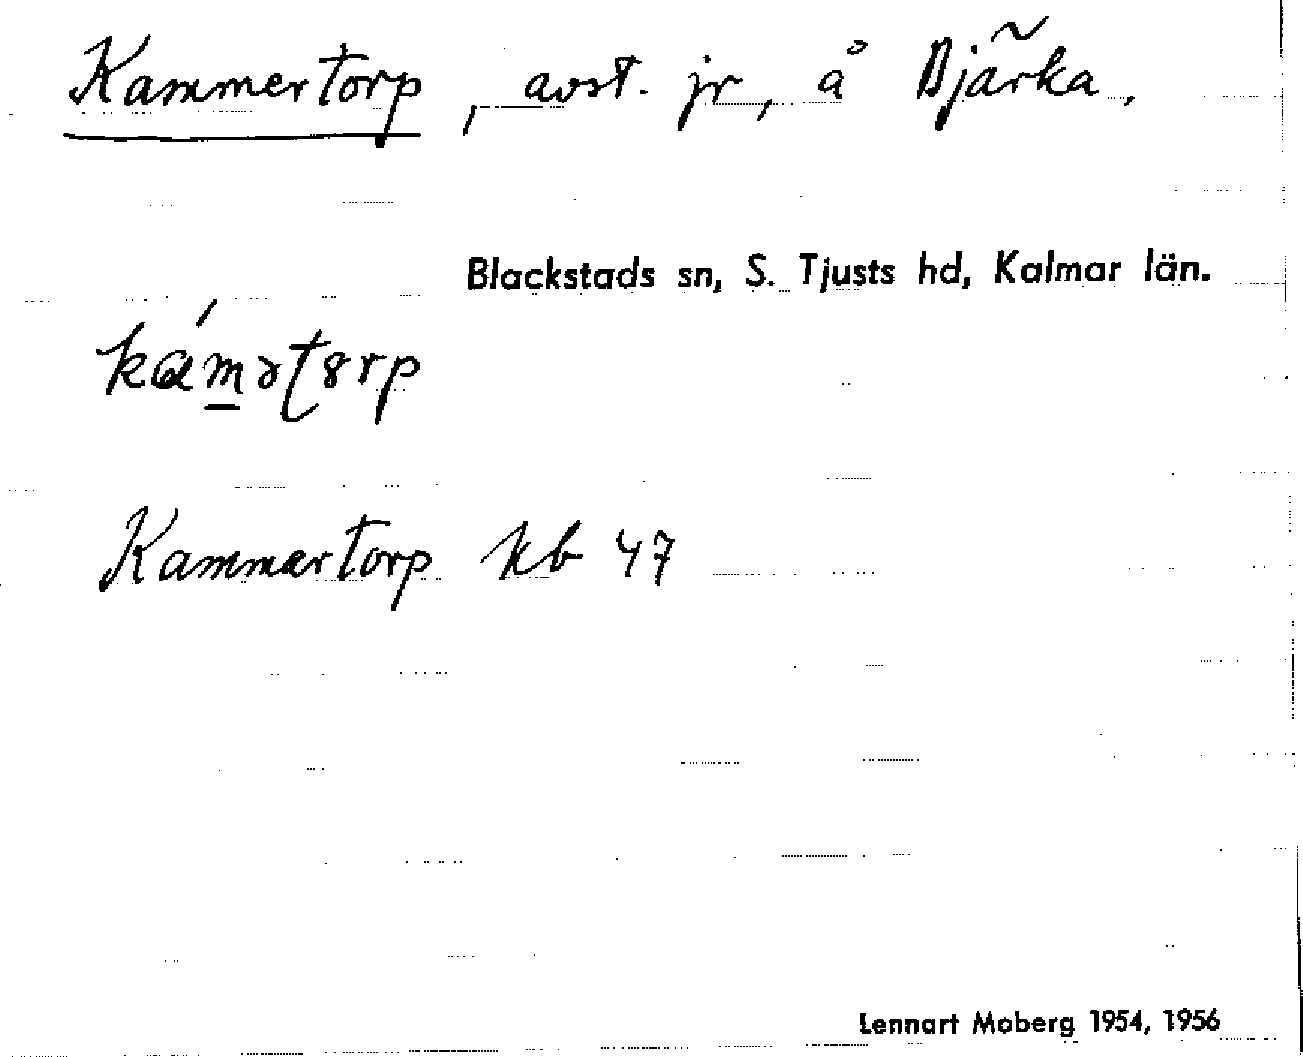 Kammertorp, avst. jr, å Bjärka.
Blackstads sn, S. Tjusts hd, Kalmar län.
Kammartorp kb 47
Lennart Moberg 1954, 1956